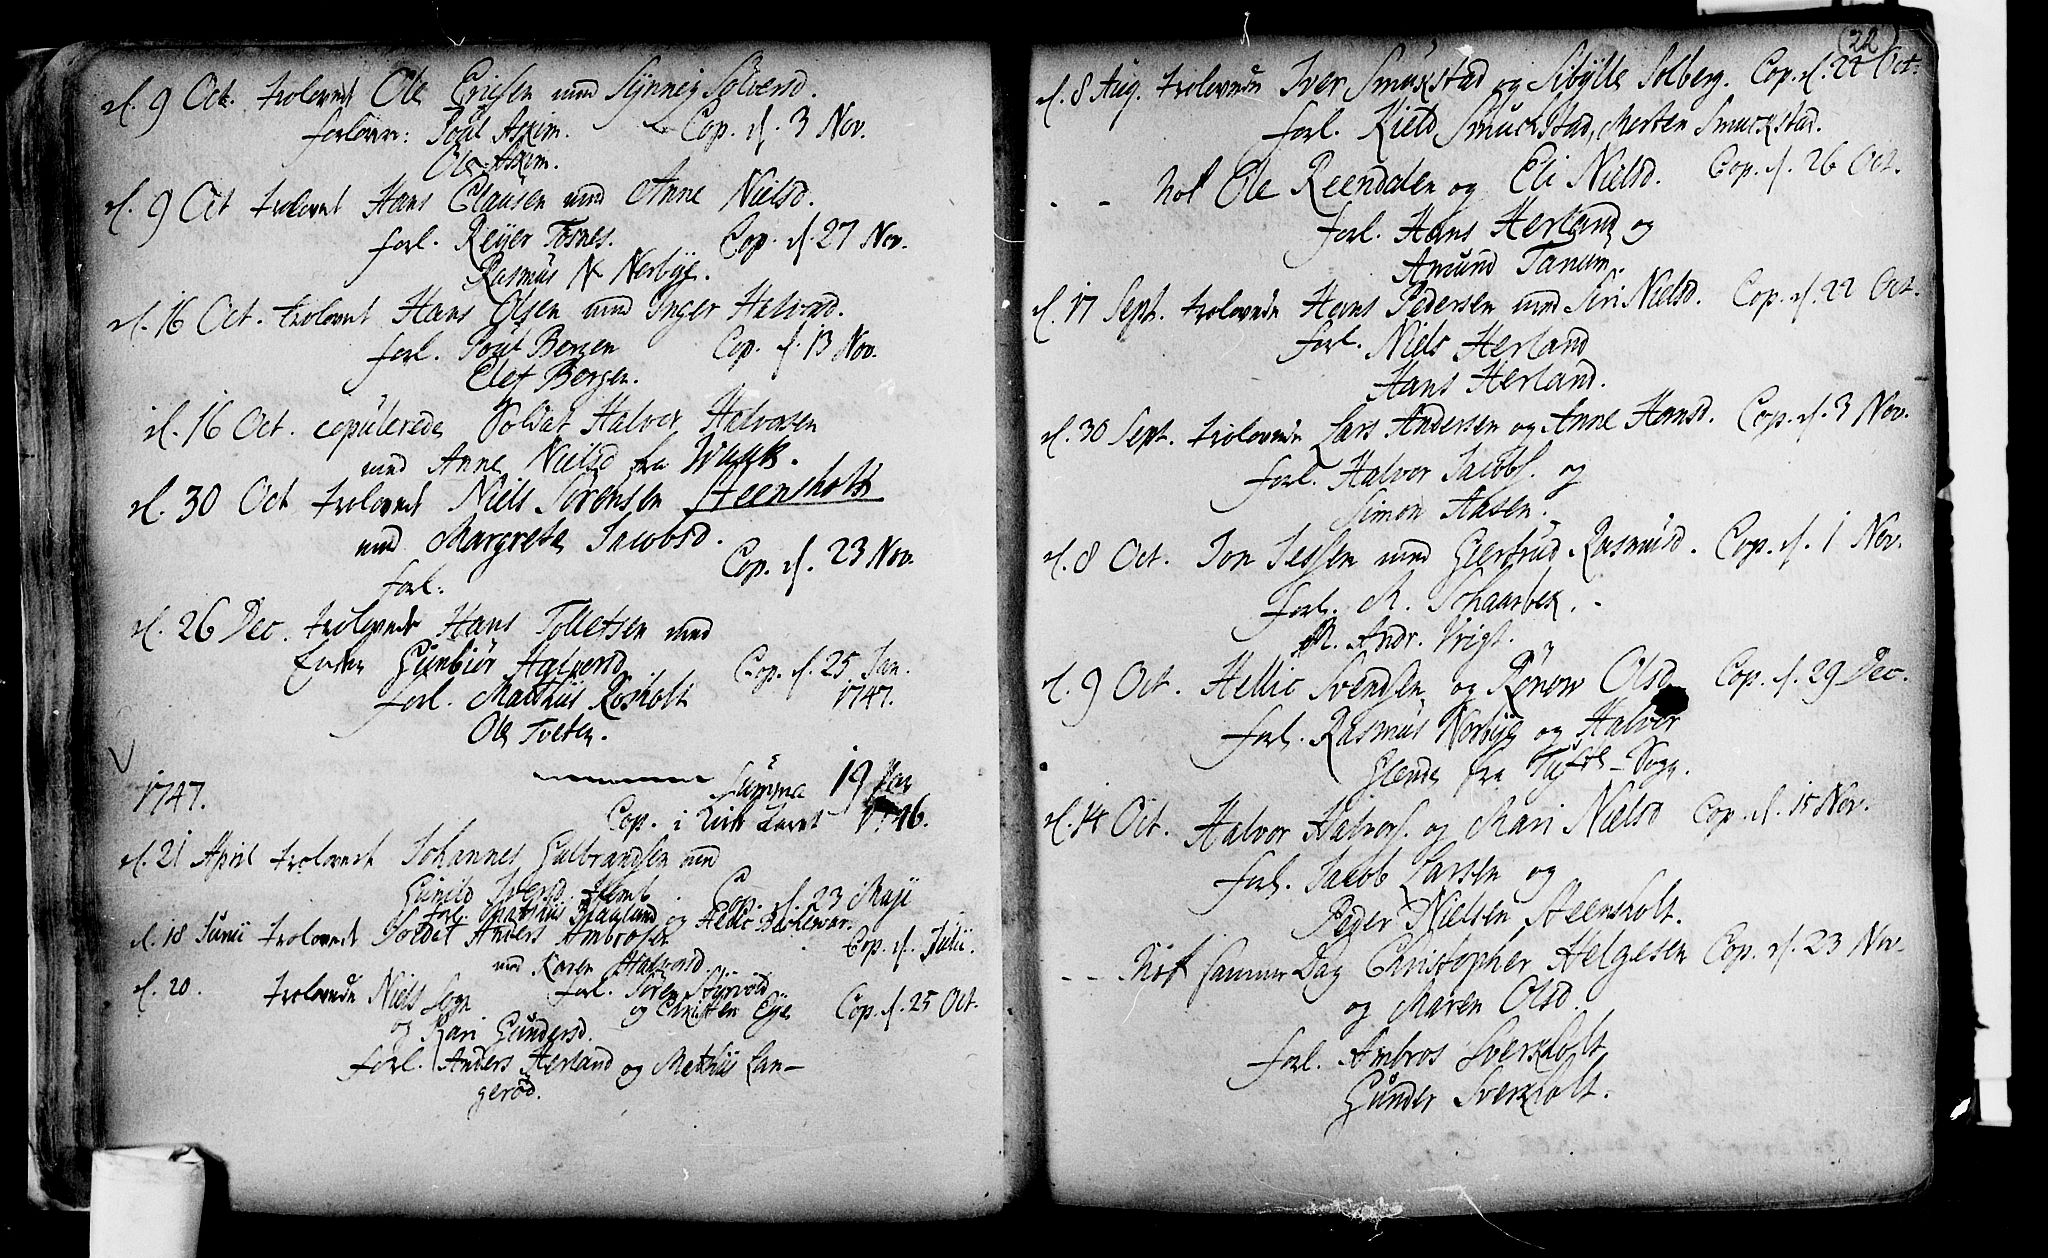 d. 9 Oct. trolovet Ole Ericsen med Synnej Solversd.
forlovere: Poul Askim. Cop. d. 3 Nov.
Ole Askim.
d. 9 Oct trolovet Hans Clausen med Anne Nielsd.
forl. Reyer Fosnes. Cop. d. 27 Nov.
Rasmus N Nerbye.
d. 16 Oct. trolovet Hans Olsen med Inger Halvord.
forl. Poul Bergen Cop. d. 13 Nov.
Elef Bergen.
d. 16 Oct. copulerede Soldat Halvor Halvorsen
med Anne Nielsd fra
d. 30 Oct trolovet Niels Sörensen Steensholt
med Margrete Jacobsd.
forl. Cop. d. 23 Nov.
d. 26 Dec. trolovede Hans Tolletsen med
Gunbiør Halvorsd Cop. d. 25 Jan.
forl. Matthiis Røsholt 1747.
Ole Tveten.
Summa 19 Par
1747.
Cop. i 1746.
d. 21 April trolovet Johannes Gulbrandsen med
Gunild Iversd. Cop. d. 23 Maji
forl. Matthiis Haaland og Hellic
d. 18 Junii trolovede Soldat Anders Ambrosen Cop. d. Julii.
med Karen Halvorsd.
forl. Sören Styrvold
d. 20. trolovede Niels Sogn og Christen Eye Cop. d. 25 Oct.
og Kari Gundersd.
forl. Anders Herland og Mathiis Lan-
gerød.
(22)
d. 8 Aug. trolovede Iver Smukstad og Sibylle Solberg. Cop. d. 22 Oct.
forl. Kield Smuckstad, Morten Smuckstad.
- - nok Ole Reendalen og Eli Nielsd. Cop. d. 26 Oct.
forl. Hans Herland og
Amund Tanum.
d. 17 Sept. trolovede Hans Pedersen med Siri Nielsd. Cop. d. 22 Oct.
forl. Niels Herland
Hans Herland.
d. 30 Sept. trolovede Lars Andersen og Anne Hansd. Cop. d. 3 Nov.
forl. Halvor Jacobs. og
Simon Aasen.
d. 8 Oct. Jon Jessen med Giertrud Rasmusd. Cop. d. 1 Nov.
forl. M. Schaarbek.
M. Andr. Vrigt.
d. 9 Oct. Hellic Svendsen og Rønow Olsd Cop. d. 29 Dec.
forl. Rasmus Norbye og Halvor
Glende fra Sogn.
d. 14 Oct. Halvor Halvors. og Mari Nielsd Cop. d. 15 Nov.
forl. Jacob Larsen og
Peder Nielsen Steensholt.
- - Nok samme Dag Christopher Helgesen Cop. d. 23 Nov.
og Maren Olsd.
forl. Ambros Sverkholt
Gunder Sverkholt.